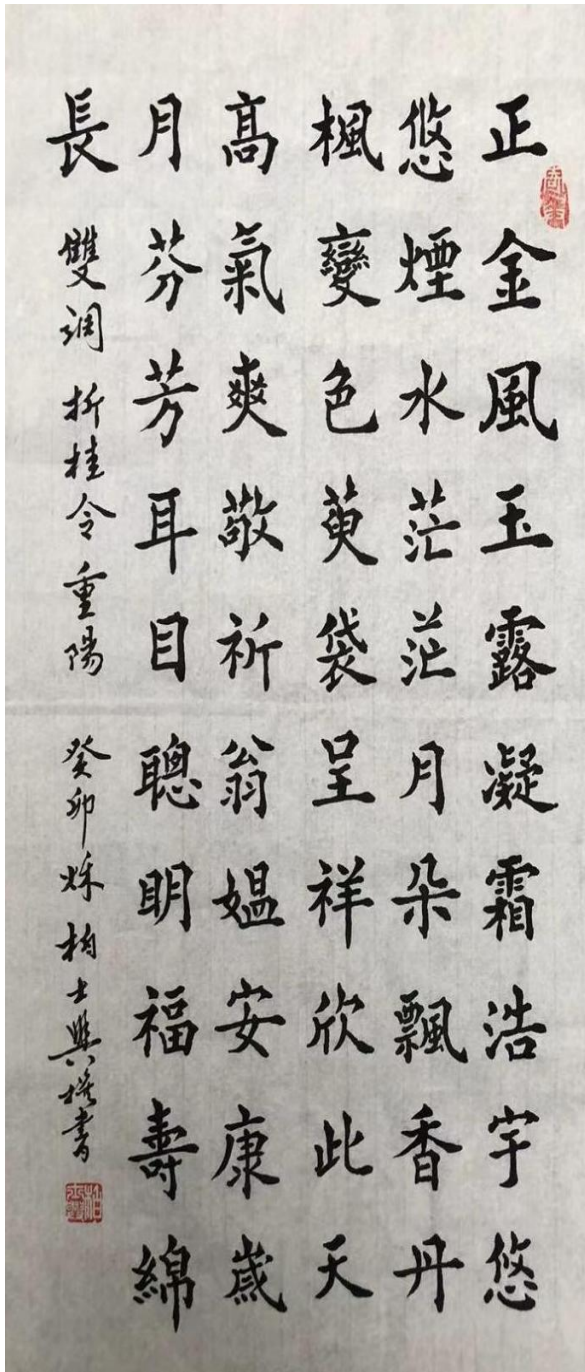 正金風玉露凝霜浩宇悠
悠煙水茫茫月朵飄香丹
楓變色萸袋呈祥欣此天
高氣爽敬祈翁媼安康歲
月芬芳耳目聰明福壽綿
長
雙調折桂令重陽
癸卯秌柏士興撰書